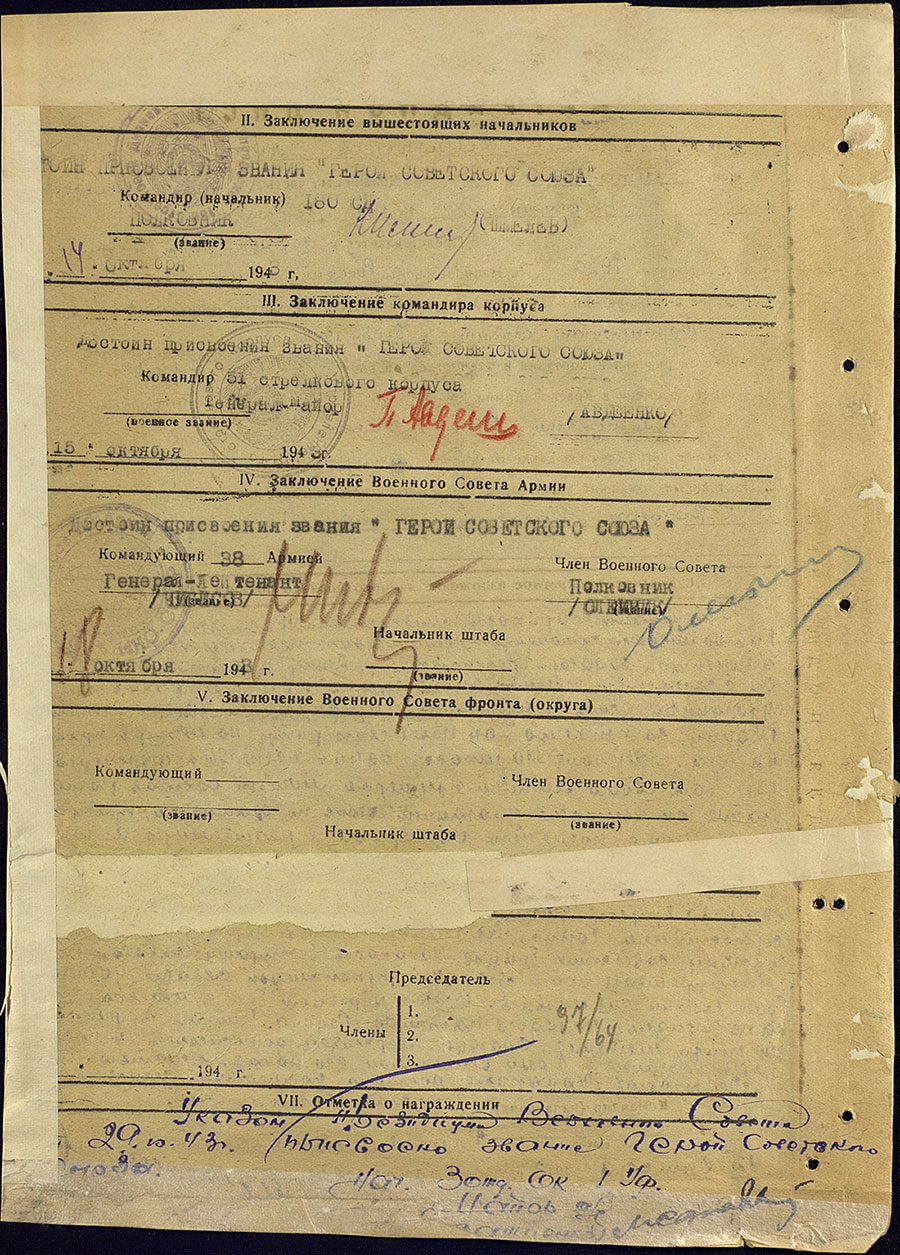 II. Заключение вышестоящих начальников
ЗВАНИЯ "ГЕРОЙ СОВЕТСКОГО СОЮЗА"
Командир (начальник) 180 СД
ПОЛКОВНИК (ШМЕЛЕВ)
(звание)
14 Октября 1943 г,
III. Заключение командира корпуса
Достоин присвоения звания " ГЕРОЙ СОВЕТСКОГО СОЮЗА"
Командир 51 стрелкового корпуса
Генерал-майор /АВДЕЕНКО/
(военное звание)
15 октября 1943г.
IV. Заключение Военного Совета Армии
Достоин присвоения звания " ГЕРОЙ СОВЕТСКОГО СОЮЗА "
Командующий 38 Армией Член Военного Совета
Генерал-Лейтенант Полковник
/ЧИБИСОВ/ (звание) /ОЛЕЙНИК/ (звание)
Начальник штаба
18 октября 1943 г.
(звание)
V. Заключение Военного Совета фронта (округа)
Командующий Член Военного Совета
(звание) (звание)
Начальник штаба
Председатель
Члены
1.
2.
3.
97/64
194 г.
VII. Отметка о награждении
Указом Президиума Верховного Совета
29.10.43г. присвоено звание Герой Советского
Союза.
Нач. 3 отд. ОК 1 УФ.
Майор